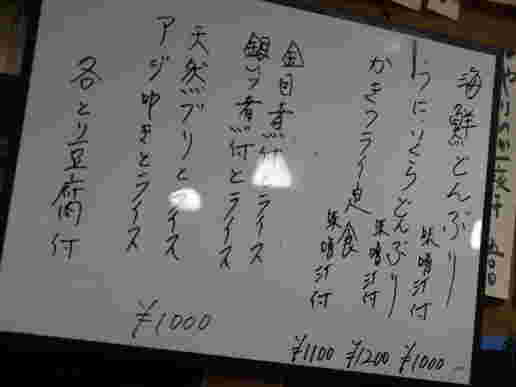 海鮮どんぶり 味噌汁付 ¥1000
うにいくらどんぶり 味噌汁付 ¥1200
かきフライ定食 味噌汁付 ¥1100
金目煮付とライス
銀ムツ煮付とライス
天然ブリとライス
アジ叩きとライス
各とり豆腐付
¥1000